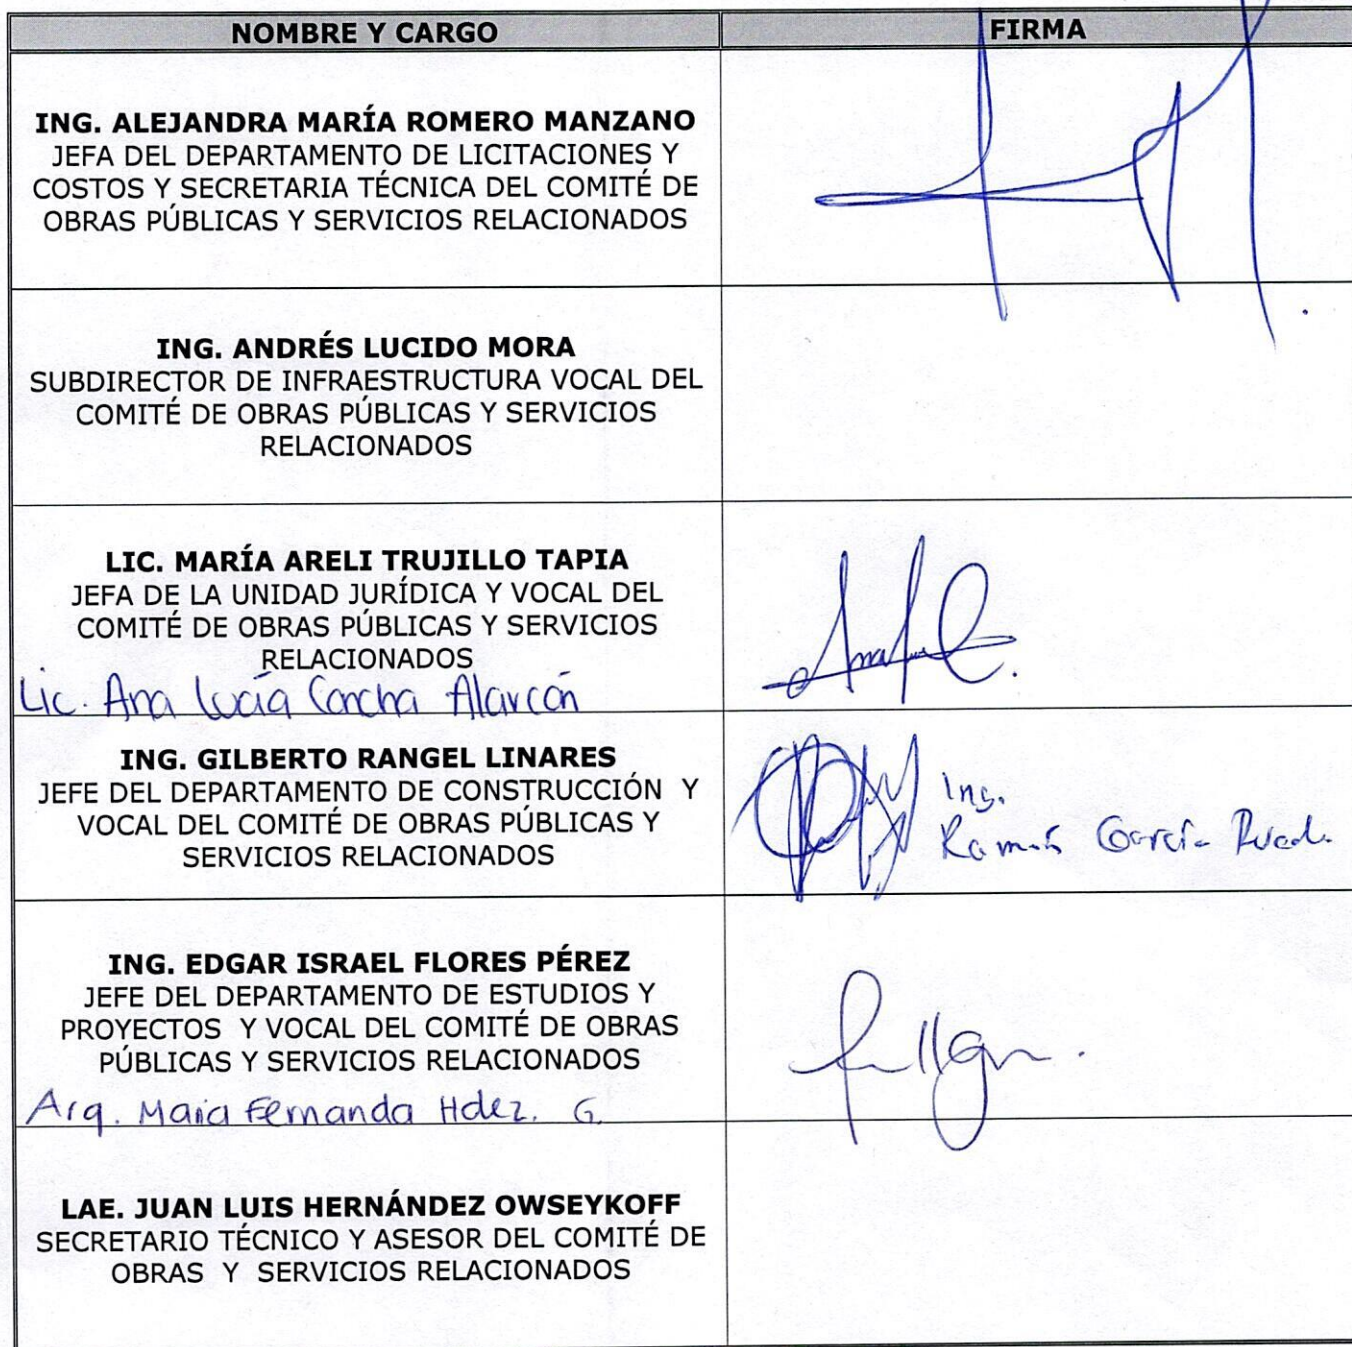 NOMBRE Y CARGO
FIRMA
ING. ALEJANDRA MARÍA ROMERO MANZANO
JEFA DEL DEPARTAMENTO DE LICITACIONES Y
COSTOS Y SECRETARIA TÉCNICA DEL COMITÉ DE
OBRAS PÚBLICAS Y SERVICIOS RELACIONADOS
ING. ANDRÉS LUCIDO MORA
SUBDIRECTOR DE INFRAESTRUCTURA VOCAL DEL
COMITÉ DE OBRAS PÚBLICAS Y SERVICIOS
RELACIONADOS
LIC. MARÍA ARELI TRUJILLO TAPIA
JEFA DE LA UNIDAD JURÍDICA Y VOCAL DEL
COMITÉ DE OBRAS PÚBLICAS Y SERVICIOS
RELACIONADOS
Lic. Ana Lucía Concha Alarcón
ING. GILBERTO RANGEL LINARES
JEFE DEL DEPARTAMENTO DE CONSTRUCCIÓN Y
VOCAL DEL COMITÉ DE OBRAS PÚBLICAS Y
SERVICIOS RELACIONADOS
Ing.
Ramón García
ING. EDGAR ISRAEL FLORES PÉREZ
JEFE DEL DEPARTAMENTO DE ESTUDIOS Y
PROYECTOS Y VOCAL DEL COMITÉ DE OBRAS
PÚBLICAS Y SERVICIOS RELACIONADOS
Arq. Maria Fernanda Hdez. G.
LAE. JUAN LUIS HERNÁNDEZ OWSEYKOFF
SECRETARIO TÉCNICO Y ASESOR DEL COMITÉ DE
OBRAS Y SERVICIOS RELACIONADOS